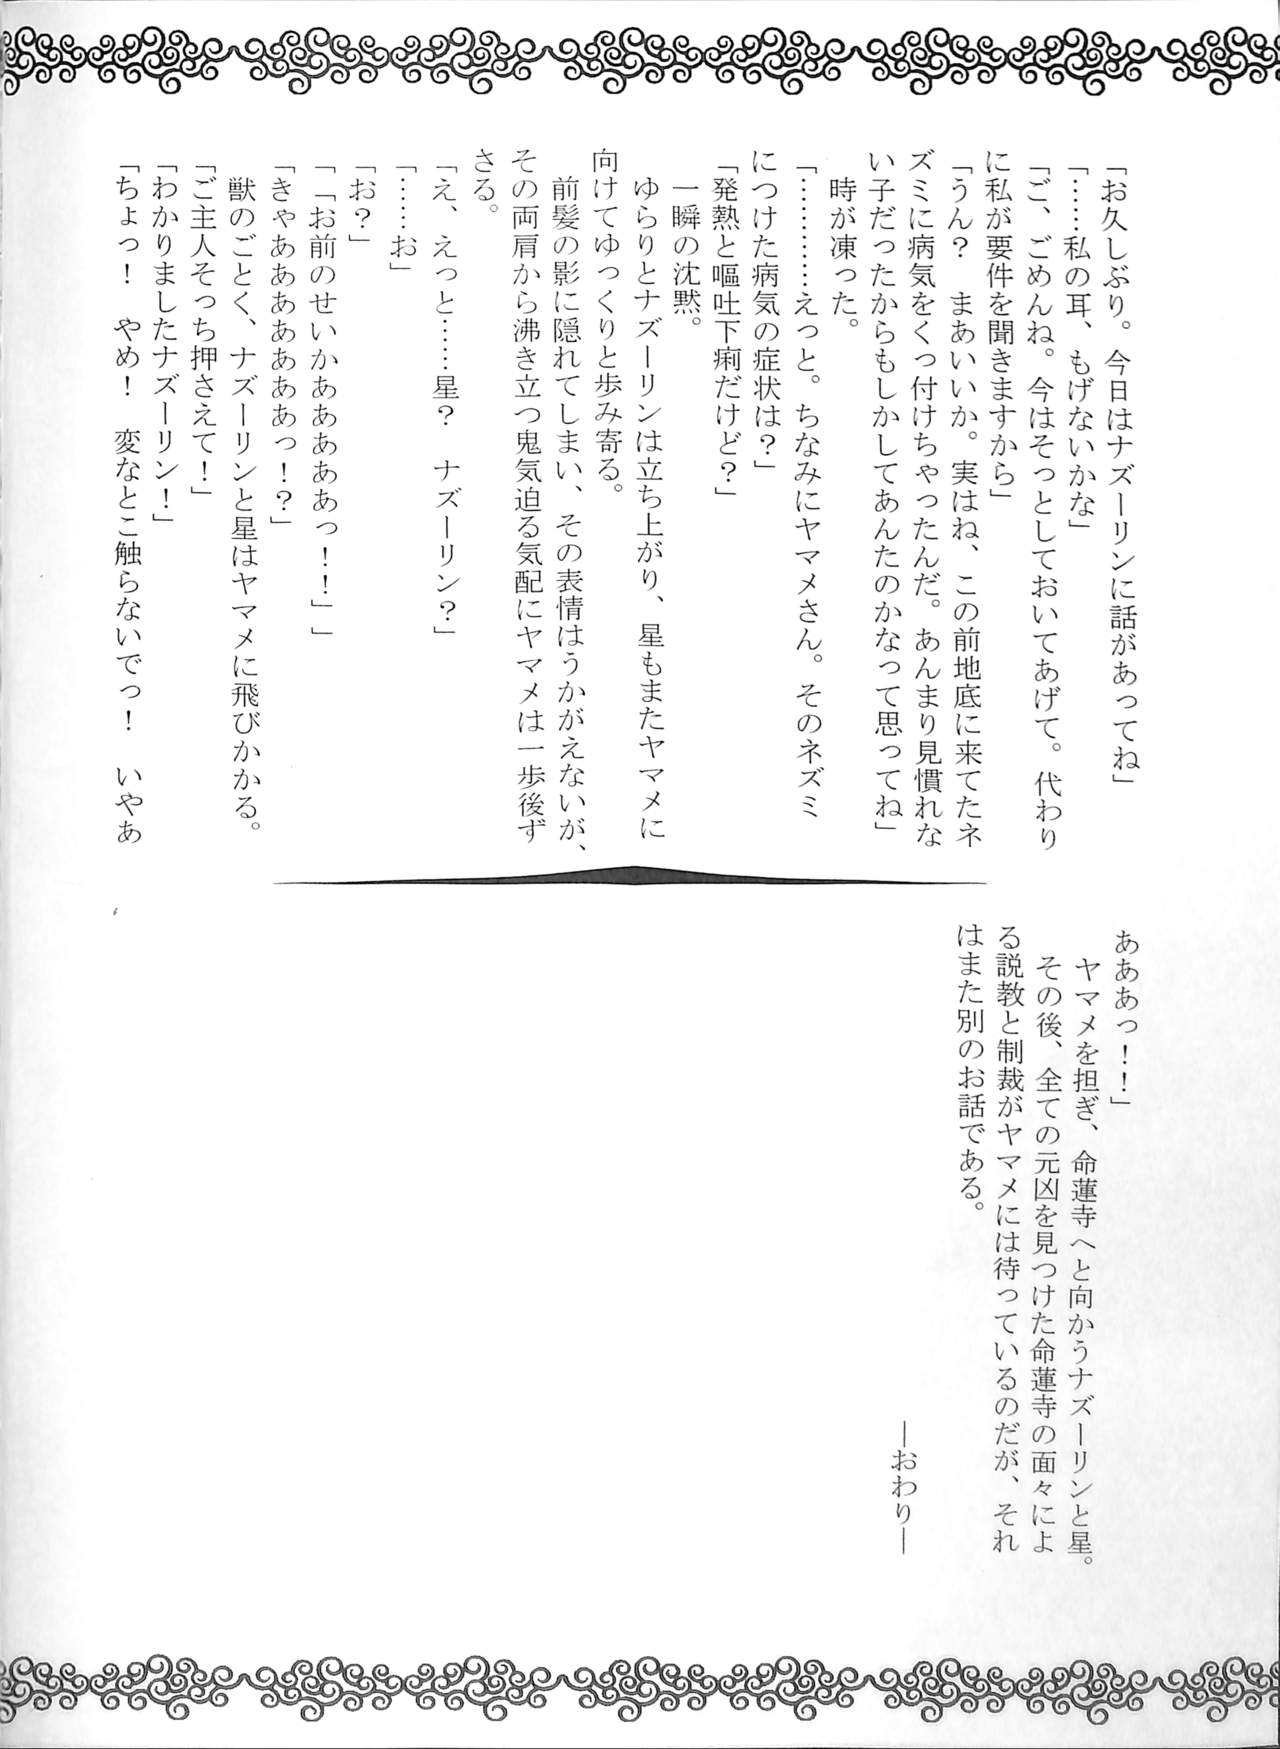 「お久しぶり。今日はナズーリンに話があってね」
「……私の耳、もげないかな」
「ご、ごめんね。今はそっとしておいてあげて。代わり
に私が要件を聞きますから」
「うん？　まあいいか。実はね、この前地底に来てたネ
ズミに病気をくっ付けちゃったんだ。あんまり見慣れな
い子だったからもしかしてあんたのかなって思ってね」
　時が凍った。
「…………えっと。ちなみにヤマメさん。そのネズミ
につけた病気の症状は？」
「発熱と嘔吐下痢だけど？」
　一瞬の沈黙。
　ゆらりとナズーリンは立ち上がり、星もまたヤマメに
向けてゆっくりと歩み寄る。
　前髪の影に隠れてしまい、その表情はうかがえないが、
その両肩から沸き立つ鬼気迫る気配にヤマメは一歩後ず
さる。
「え、えっと……星？　ナズーリン？」
「……お」
「お？」
「「お前のせいかあああああっ！！」」
「きゃああああああああっ！？」
　獣のごとく、ナズーリンと星はヤマメに飛びかかる。
「ご主人そっち押さえて！」
「わかりましたナズーリン！」
「ちょっ！　やめ！　変なとこ触らないでっ！　いやあ
あああっ！！」
　ヤマメを担ぎ、命蓮寺へと向かうナズーリンと星。
　その後、全ての元凶を見つけた命蓮寺の面々によ
る説教と制裁がヤマメには待っているのだが、それ
はまた別のお話である。
―おわり―